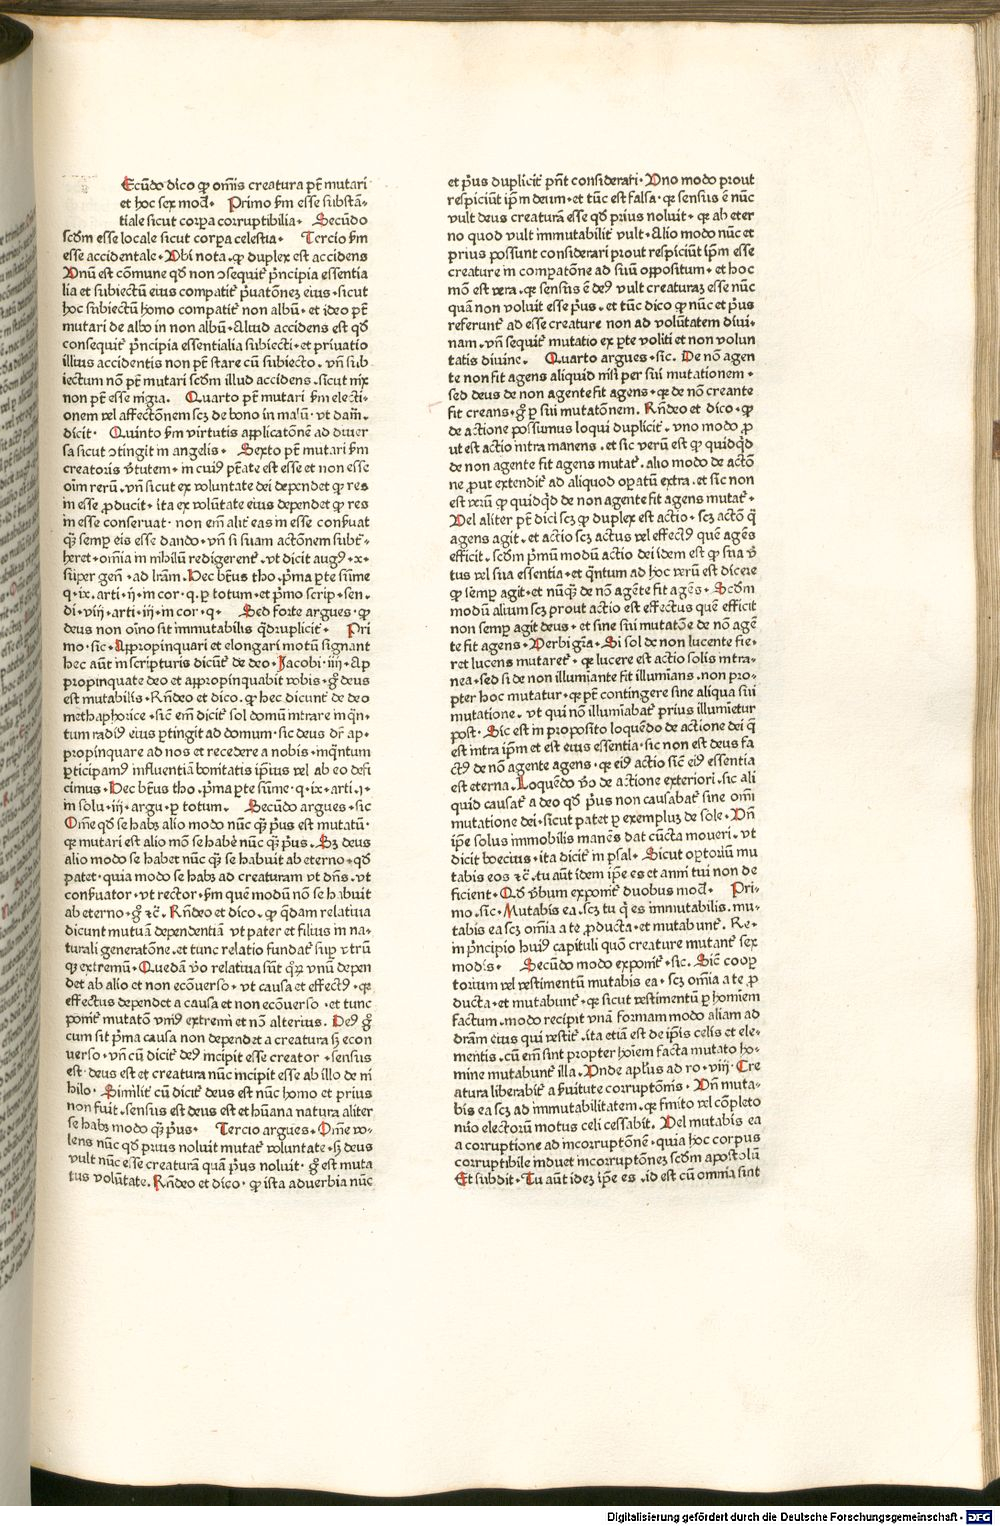 Ecūdo dico ꝙ om̄is creatura pt̄ mutari
et hoc sex mod̄. Primo ẜm esse substā-
tiale sicut corꝑa corruptibilia. Secūdo
scdm̄ esse locale sicut corꝑa celestia. Tercio ẜm
esse accidentale. Vbi nota. ꝙ duplex est accidens
Vnū est cōmune qd̄ non ↄsequit᷑ p̄ncipia essentia
lia et subiectū eius compatit᷑ p̄uatōnez eius. sicut
hoc subiectū homo compatit᷑ non albū. et ideo pt̄
mutari de albo in non albū. Aliud accidens est qd̄
consequit᷑ p̄ncipia essentialia subiecti. et priuatio
illius accidentis non pt̄ stare cū subiecto. vn̄ sub
iectum nō pt̄ mutari scdm̄ illud accidens. sicut nix
non pt̄ esse nigra. Quarto pt̄ mutari ẜm electi-
onem vel affectōnem scꝫ de bono in malū. vt dam̄.
dicit. Quinto ẜm virtutis applicatōnē ad diuer
sa sicut ↄtingit in angelis. Sexto pt̄ mutari ẜm
creatoris v̄tutem. in cuiꝰ pt̄ate est esse et non esse
oīm rerū. vn̄ sicut ex voluntate dei dependet ꝙ res
in esse ꝓducit. ita ex volūtate eius dependet ꝙ res
in esse conseruat. non em̄ alit᷑ eas in esse conẜuat
qꝫ̄ semꝑ eis esse dando. vn̄ si suam actōnem subt᷑-
heret. om̄ia in nihilū redigerent᷑. vt dicit augꝰ. x.
super gen̄. ad lr̄am. Hec bt̄us tho. p̄ma ꝑte sūme
q. ix. arti. ij. in cor. q. ꝑ totum. et p̄mo scrip. sen.
di. viij. arti. iij. in cor. q. Sed forte argues. ꝙ
deus non oīno sit immutabilis qd̄ruplicit᷑. Pri
mo. sic. Appropinquari et elongari motū signant
hec aūt in scripturis dicūt᷑ de deo. Jacobi. iiij. Ap
propinquate deo et appropinquabit vobis. gͦ deus
est mutabilis. Rn̄deo et dico. ꝙ hec dicunt᷑ de deo
methaphorice. sic̄ em̄ dicit᷑ sol domū intrare inqn̄-
tum radiꝰ eius ꝑtingit ad domum. sic deus dr̄ ap-
propinquare ad nos et recedere a nobis. inqn̄tum
ꝑticipamꝰ influentiā bonitatis ip̄ius vel ab eo defi
cimus. Hec bt̄us tho. p̄ma ꝑte sūme. q. ix. arti. j.
in solu. iij. argu. ꝑ totum. Secūdo argues. sic
Om̄e qd̄ se habꝫ alio modo nūc qꝫ̄ p̄us est mutatū.
qꝛ mutari est alio mō se habē nūc qꝫ̄ p̄us. Sꝫ deus
alio modo se habet nūc qꝫ̄ se habuit ab eterno. qd̄
patet. quia modo se habꝫ ad creaturam vt dn̄s. vt
conẜuator. vt rector. ẜm quē modū nō se habuit
ab eterno. gͦ ⁊c̄. Rn̄deo et dico. ꝙ qd̄am relatiua
dicunt mutuā dependentiā vt pater et filius in na-
turali generatōne. et tunc relatio fundat᷑ suꝑ vtrū
qꝫ extremū. Quedā v̄o relatiua sūt qꝝ vnū depen
det ab alio et non ecōuerso. vt causa et effectꝰ. qꝛ
effectus dependet a causa et non ecōuerso. et tunc
ponit᷑ mutatō vniꝰ extremi et nō alterius. Deꝰ gͦ
cum sit p̄ma causa non dependet a creatura sꝫ econ
uerso. vn̄ cū dicit᷑ deꝰ incipit esse creator. sensus
est. deus est et creatura nūc incipit esse ab illo de ni
hilo. Similit᷑ cū dicit᷑ deus est nūc homo et prius
non fuit. sensus est deus est et hūana natura aliter
se habꝫ modo qꝫ̄ p̄us. Tercio argues. Om̄e vo-
lens nūc qd̄ prius noluit mutat᷑ voluntate. sꝫ deus
vult nūc esse creaturā quā p̄us noluit. gͦ est muta
tus volūtate. Rn̄deo et dico. ꝙ ista aduerbia nūc
et p̄us duplicit᷑ pn̄t considerari. Vno modo prout
respiciūt ip̄m deum. et tūc est falsa. qꝛ sensus ē nūc
vult deus creaturā esse qd̄ prius noluit. qꝛ ab eter
no quod vult immutabilit᷑ vult. Alio modo nūc et
prius possunt considerari prout respiciūt ip̄m esse
creature in comꝑatōne ad suū oppositum. et hoc
mō est vera. qꝛ sensus ē deꝰ vult creaturaꝫ esse nūc
quā non voluit esse p̄us. et tūc dico ꝙ nūc et p̄us
referunt᷑ ad esse creature non ad volūtatem diui-
nam. vn̄ sequit᷑ mutatio ex ꝑte voliti et non volun
tatis diuine. Quarto argues. sic. De nō agen
te non fit agens aliquid nisi per sui mutationem.
sed deus de non agente fit agens. qꝛ de nō creante
fit creans. gͦ ꝑ sui mutatōnem. Rn̄deo et dico. ꝙ
de actione possumus loqui duplicit᷑. vno modo ꝓ
ut est actio intra manens. et sic verū est ꝙ quidqd̄
de non agente fit agens mutat᷑. alio modo de actō
ne ꝓut extendit᷑ ad aliquod oꝑatū extra. et sic non
est verū ꝙ quidqd̄ de non agente fit agens mutat᷑.
Vel aliter pt̄ dici scꝫ ꝙ duplex est actio. scꝫ actō q̄
agens agit. et actio scꝫ actus vel effectꝰ quē agēs
efficit. scdm̄ p̄mū modū actio dei idem est ꝙ sua v̄
tus vel sua essentia. et qn̄tum ad hoc verū est dicere
ꝙ semꝑ agit. et nūqꝫ̄ de nō agēte fit agēs. Scdm̄
modū alium scꝫ prout actio est effectus quē efficit
non semꝑ agit deus. et sine sui mutatōe de nō agē
te fit agens. Verbi grā. Si sol de non lucente fie-
ret lucens mutaret᷑. qꝛ lucere est actio solis intra-
nea. sed si de non illumiante fit illumians. non pro-
pter hoc mutatur. qꝛ pt̄ contingere sine aliqua sui
mutatione. vt qui nō illumiabat᷑ prius illumiet᷑ur
post. Sic est in proposito loquēdo de actione dei q̄
est intra ip̄m et est eius essentia. sic non est deus fa
ctꝰ de nō agente agens. qꝛ eiꝰ actio sic̄ eiꝰ essentia
est eterna. Loquēdo v̄o de actione exteriori. sic ali
quid causat᷑ a deo qd̄ p̄us non causabat᷑ sine om̄i
mutatione dei. sicut patet ꝑ exempluꝫ de sole. Vn̄
ip̄e solus immobilis manēs dat cūcta moueri. vt
dicit boecius. ita dicit᷑ in psal. Sicut optoriū mu
tabis eos ⁊c̄. tu aūt idem ip̄e es et anni tui non de
ficient. Qd̄ v̄bum exponit᷑ duobus mod̄. Pri-
mo. sic. Mutabis ea. scꝫ tu q̄ es immutabilis. mu-
tabis ea scꝫ om̄ia a te ꝓducta. et mutabunt᷑. Re-
in p̄ncipio huiꝰ capituli quō creature mutant᷑ sex
modis. Secūdo modo exponit᷑. sic. Sic̄ cooꝑ
torium vel vestimentū mutabis ea. scꝫ om̄ia a te ꝓ
ducta. et mutabunt᷑. qꝛ sicut vestimentū ꝑ hominem
factum. modo recipit vnā formam modo aliam ad
dr̄am eius qui vestit᷑. ita etiā est de ip̄is celis et ele-
mentis. cū em̄ sint propter hoīem facta mutato ho-
mine mutabunt᷑ illa. Vnde apl̄us ad ro. viij. Cre
atura liberabit᷑ a ẜuitute corruptōnis. Vn̄ muta-
bis ea scꝫ ad immutabilitatem. qꝛ finito vel cōpleto
nūo electorū motus celi cessabit. Vel mutabis ea
a corruptione ad incorruptōnē. quia hoc corpus
corruptibile induet incorruptōneꝫ scdm̄ apostolū
Et subdit. Tu aūt ideꝫ ip̄e es. id est cū omnia sint
Digitalisierung gefördert durch die Deutsche Forschungsgemeinschaft - DFG